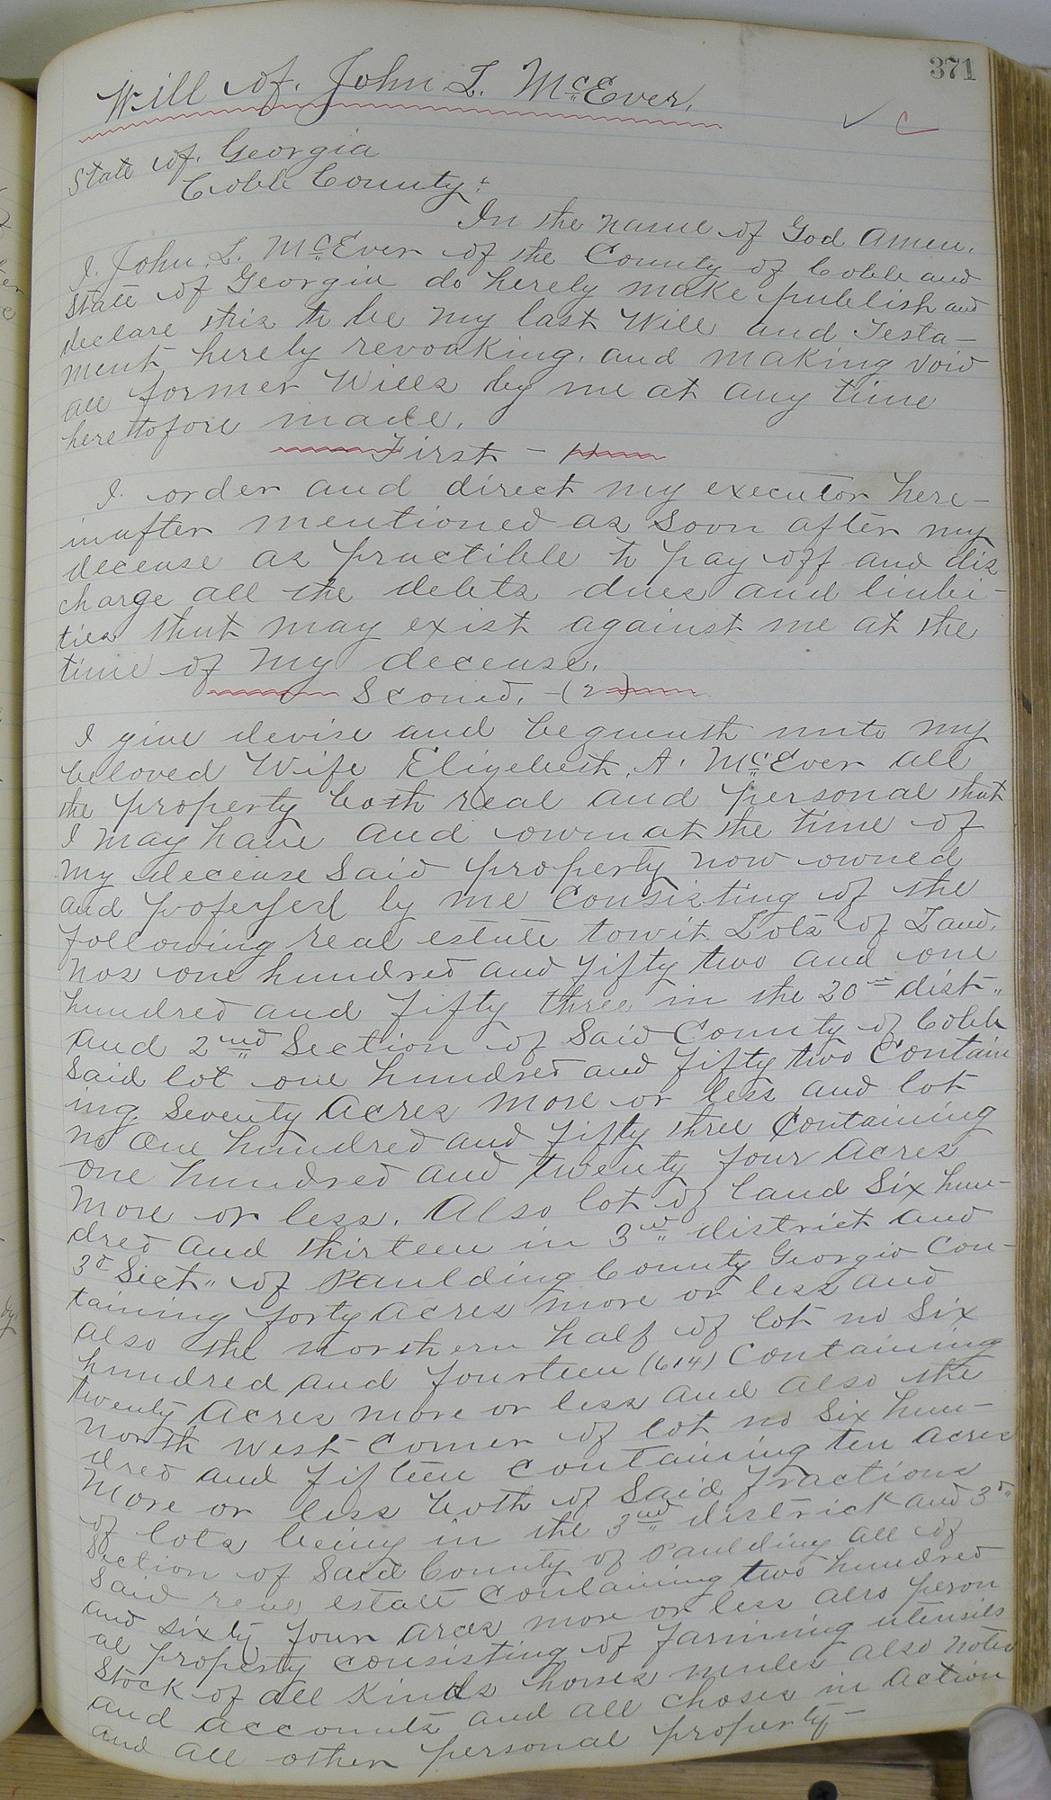 371
Will of. John L. McEver.
✓ C
State of. Georgia
Cobb County:
In the name of God Amen.
I. John. L. McEver of the County of Cobb and
State of Georgia do herely make publish and
declare this to be my last Will and Testa-
ment herely revoaking. and making void
all former Wills by me at any time
herettofore made.
First -
I. order and direct my executor here-
inafter mentioned as soon after my
decease as practible to pay off and dis
charge all the debts dues and liabi-
ties that may exist against me at the
time of my decease.
Sconed. -(2)
I give devise and bequeath unto my
beloved Wife Elizebeth. A. McEver all
the property both real and personal that
I may have and own at the time of
my decease Said property now owned
and possessed by me Consisting of the
following real estate towit Lots of Land.
Nos one hundred and fifty two and one
hundred and fifty three in the 20th dist..
and 2nd Section of Said County of Cobb
Said lot one hundred and fifty two Contain
ing. Seventy Acres more or less and lot
no One hundred and fifty three Containing
one hundred and twenty four Acres
more or less. Also lot of land Six hun-
dred and thirteen in 3rd district and
3d Sect" of Paulding County Georgia Con-
taining forty Acres more or less and
also the northern half of lot no Six
hundred and fourteen (614) Containing
twenty Acres more or less and also the
north west corner of lot no Six hun-
dred and fifteen containing ten acres
more or less both of Said fractions
of lots being in the 3rd districk and 3d"
Section of Said County of Paulding all of
Said real estate containing two hundred
and sixty four acres more or less also person
al property consisting of farming utensils
Stock of all kinds horses mules also notes
and accounts and all choses in Action
and all other personal property-